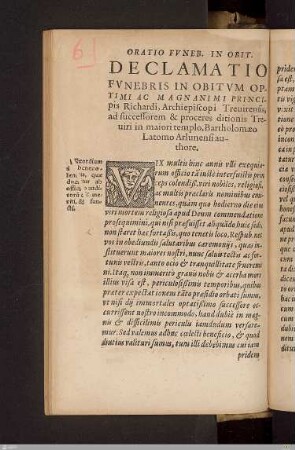 6
ORATIO FVNEB. IN OBIT.
DECLAMATIO
FVNEBRIS IN OBITVM OP-
TIMI AC MAGNANIMI PRINCI-
pis Richardi, Archiepiscopi Treuirensis,
ad successorem & proceres ditionis Tre-
uiri in maiori templo, Bartholomæo
Latomo Arlunensi au-
thore.
VIX multis hinc annis
rum officio tā insigni
ceps
ac multis præclaris nominibus emi-
nentes, quàm quo hodierno die eius
viri mortem religiosa apud Deum commendatione
prosequimini, qui nisi præfuisset aliquādo huic sedi,
non staret hæc fortassis, quo tenetis loco, Respub. ne-
que in obeūdis salutaribus cæremonijs, quas in-
stituerunt maiores nostri, nunc salua tecta ac for-
tunis vestris, tanto ocio & tranquillitate frueremi-
ni. Itaq; non immeritò graui nobis & acerba mors
illius visa est, periculosissimis temporibus, quibus
præter expectationem tāto præsidio orbati sumus,
vt nisi dij immortales optatissimo successore oc-
currissent nostro incommodo, haud dubiè in mag-
no & difficilimo periculo iamdudum versare-
mur. Sed valemus adhuc cœlesti beneficio, & quod
diutius valituri sumus, tum illi debebimus cui iam
pridem